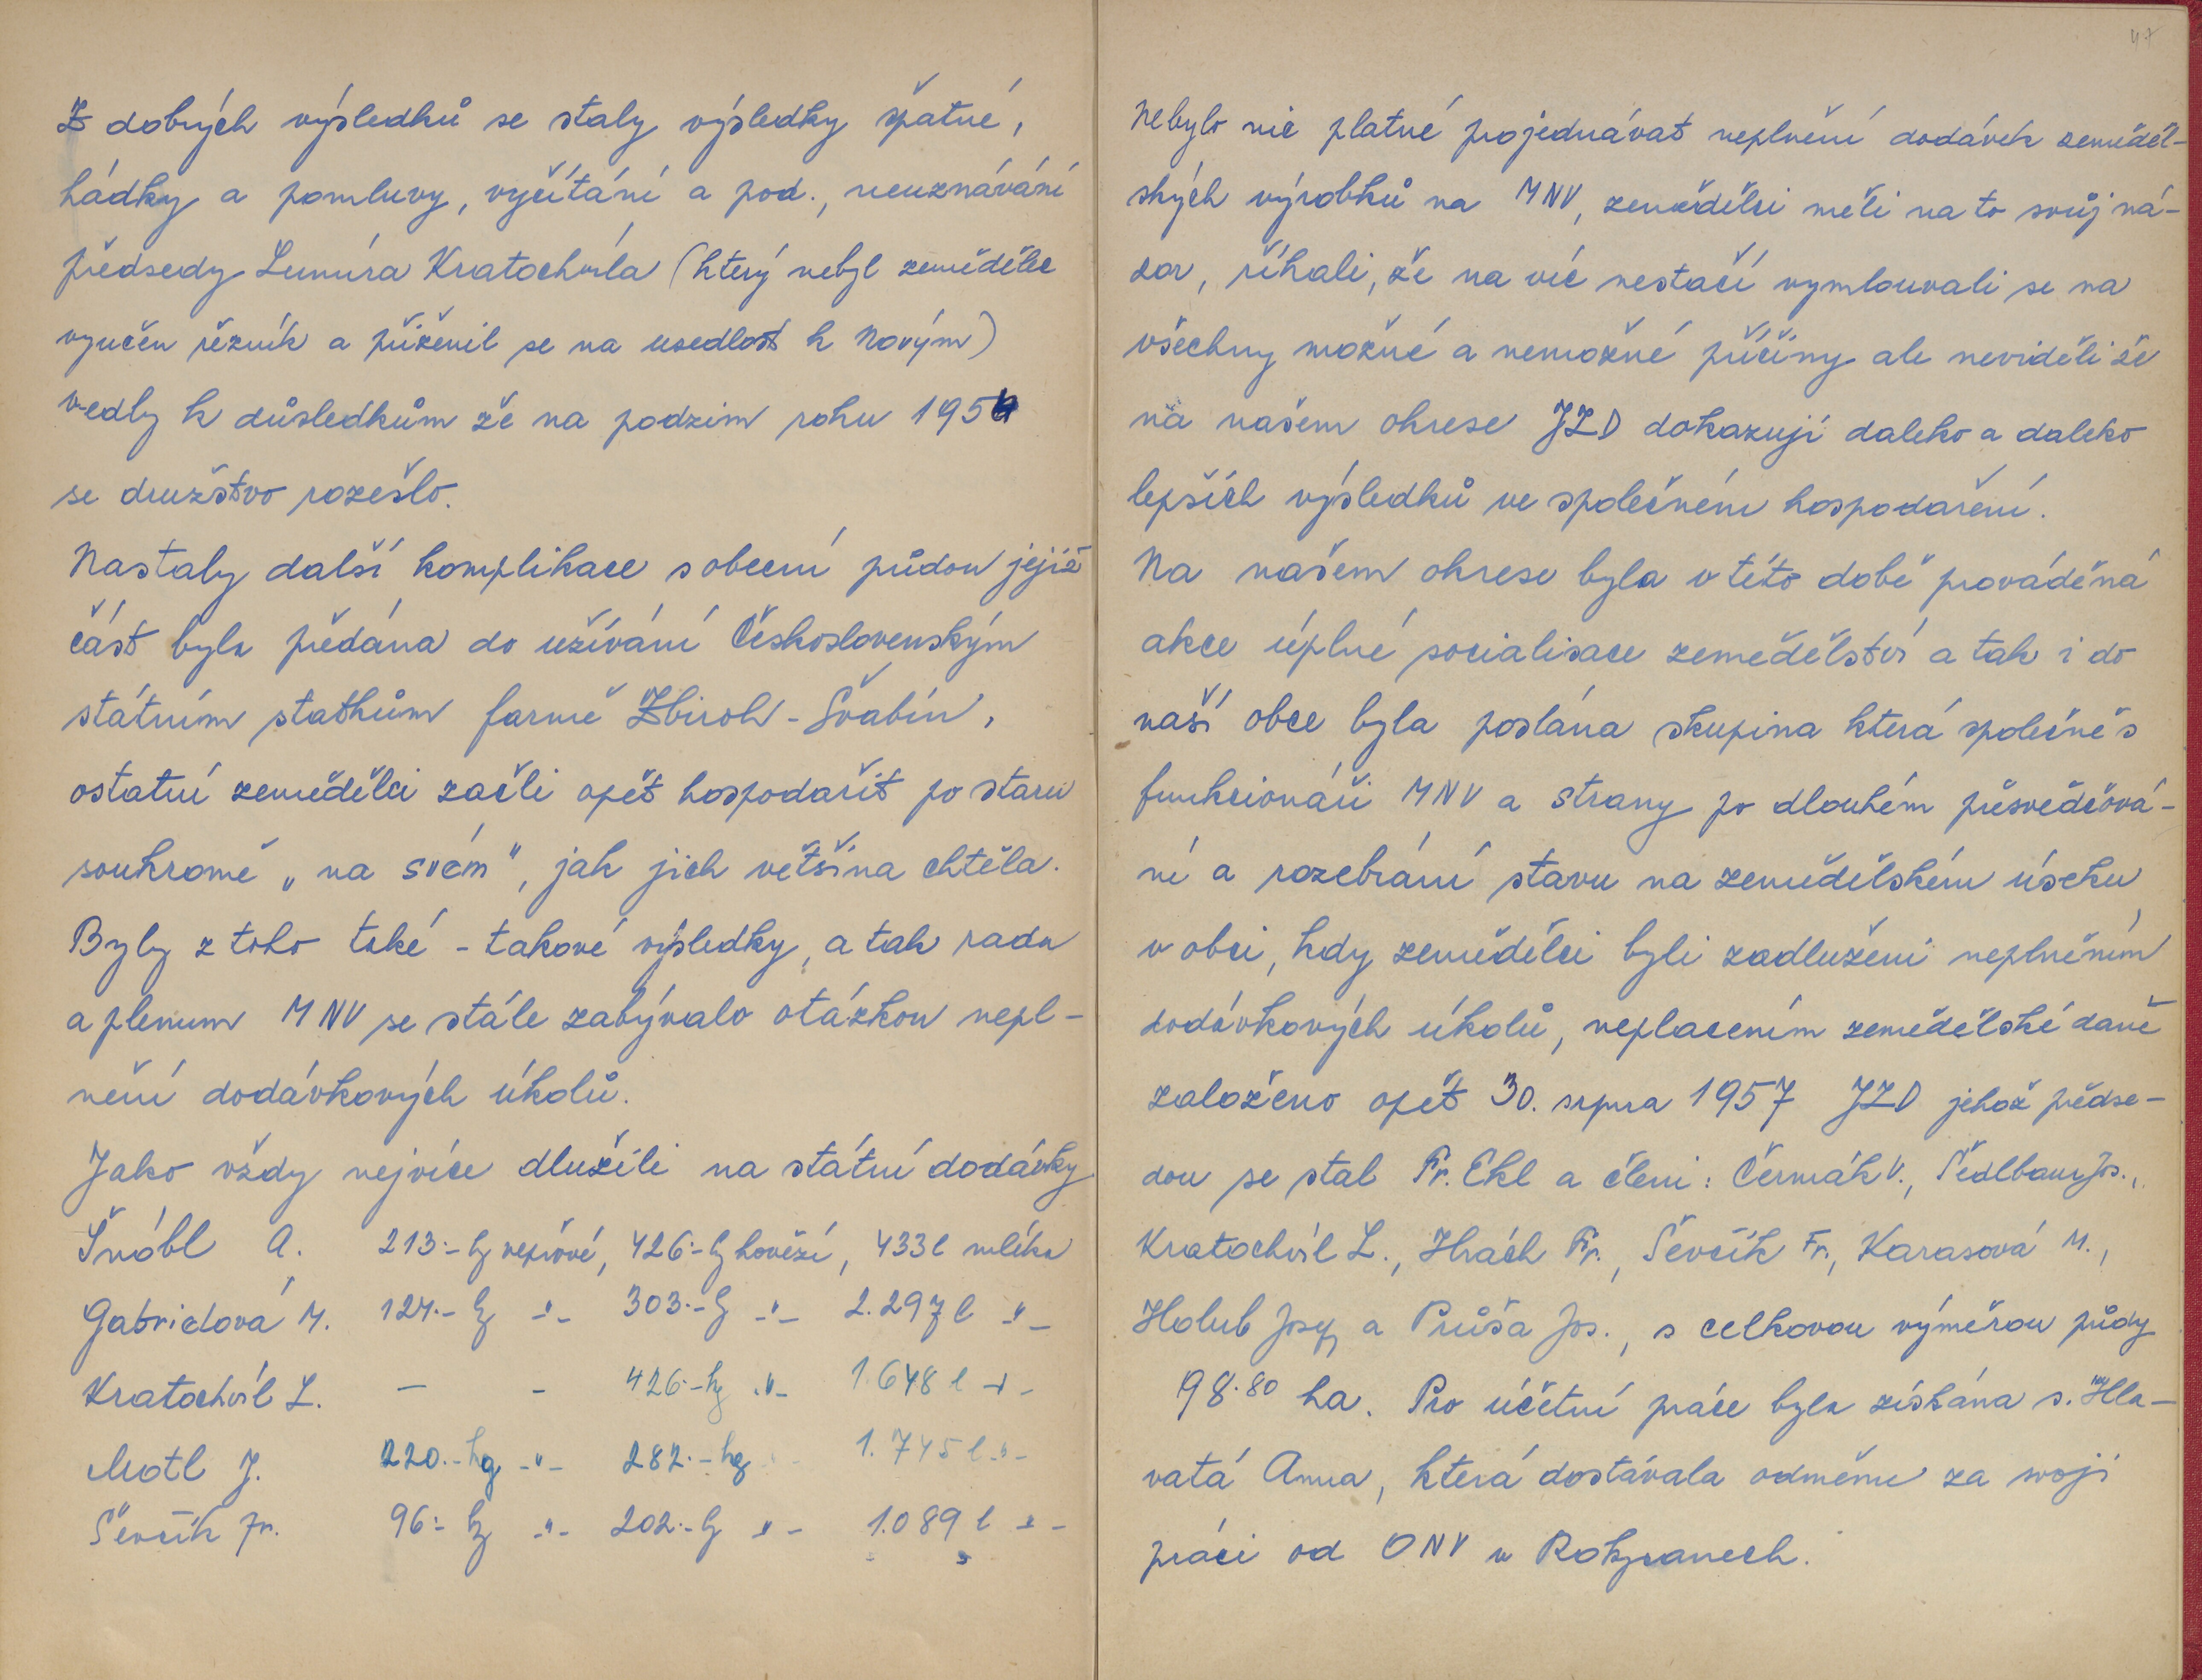 Z dobrých výsledků se staly výsledky špatné,
hádky a pomluvy, vyčítání a pod., neuznávání
předsedy Lumíra Kratochvíla (který nebyl zemědělec
vyučen řezník a přiženil se na usedlost k Novým)
vedly k důsledkům že na podzim roku 1954
se družstvo rozešlo.
Nastaly další komplikace s obecní půdou jejíž
část byla předána do užívání Československým
státním statkům farmě Zbiroh - Švabín,
ostatní zemědělci začli opět hospodařit po staru
soukromě „na svém", jak jich většina chtěla.
Byly z toho také - takové výsledky, a tak rada
a plenum MNV se stále zabývalo otázkou nepl-
nění dodávkových úkolů.
Jako vždy nejvíce dlužili na státní dodávky
Šnóbl A. 213.- kg vepřové, 426.- kg hovězí, 433 l mléka
Gabrielová M. 124.- kg -"- 303.- kg -"- 2.297 l -"-
Kratochvíl L. - - 426.- kg -"- 1.648 l -"-
Motl J. 220.- kg -"- 282.- kg 1.745 l -"-
Ševčík Fr. 96.- kg -"- 202.- kg -"- 1.089 l -"-
47
Nebylo nic platné projednávat neplnění dodávek zeměděl-
ských výrobků na MNV, zemědělci měli na to svůj ná-
zor, říkali, že na víc nestačí vymlouvali se na
všechny možné a nemožné příčiny ale neviděli že
na našem okrese JZD dokazují daleko a daleko
lepších výsledků ve společném hospodaření.
Na našem okrese byla v této době prováděná
akce úplné socialisace zemědělství a tak i do
naší obce byla poslána skupina která společně s
funkcionáři MNV a strany po dlouhém přesvědčová-
ní a rozebrání stavu na zemědělském úseku
v obci, kdy zemědělci byli zadluženi neplněním
dodávkových úkolů, neplacením zemědělské daně
založeno opět 30. srpna 1957 JZD jehož předse-
dou se stal Fr. Ekl a členi: Čermák V., Šedlbauer Jos.,
Kratochvíl L., Hrách Fr., Ševčík Fr., Karasová M.,
Holub Josef a Průša Jos., s celkovou výměrou půdy
98.80 ha. Pro účetní práce byla získána s. Hla-
vatá Anna, která dostávala odměnu za svoji
práci od ONV v Rokycanech.